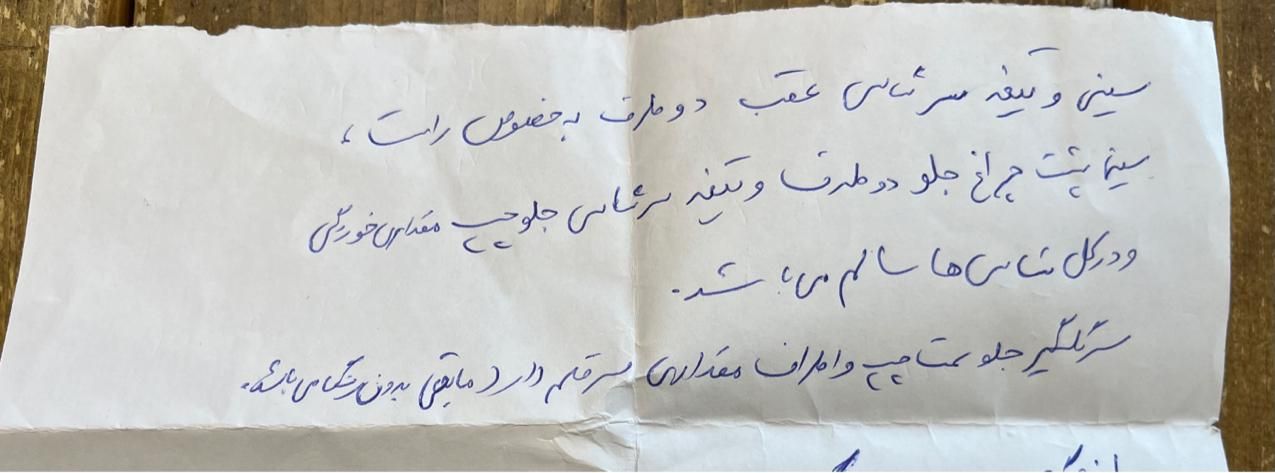 سینی و تیغه سر شاسی عقب دو طرف به خصوص راست ،
سینی پشت چراغ جلو دو طرف و تیغه سر شاسی جلو چپ مقداری خوردگی
و در کل شاسی ها سالم می باشد .
سر گلگیر جلو سمت چپ و اطراف مقداری سر قلم دارد مابقی بدون رنگ می باشد .